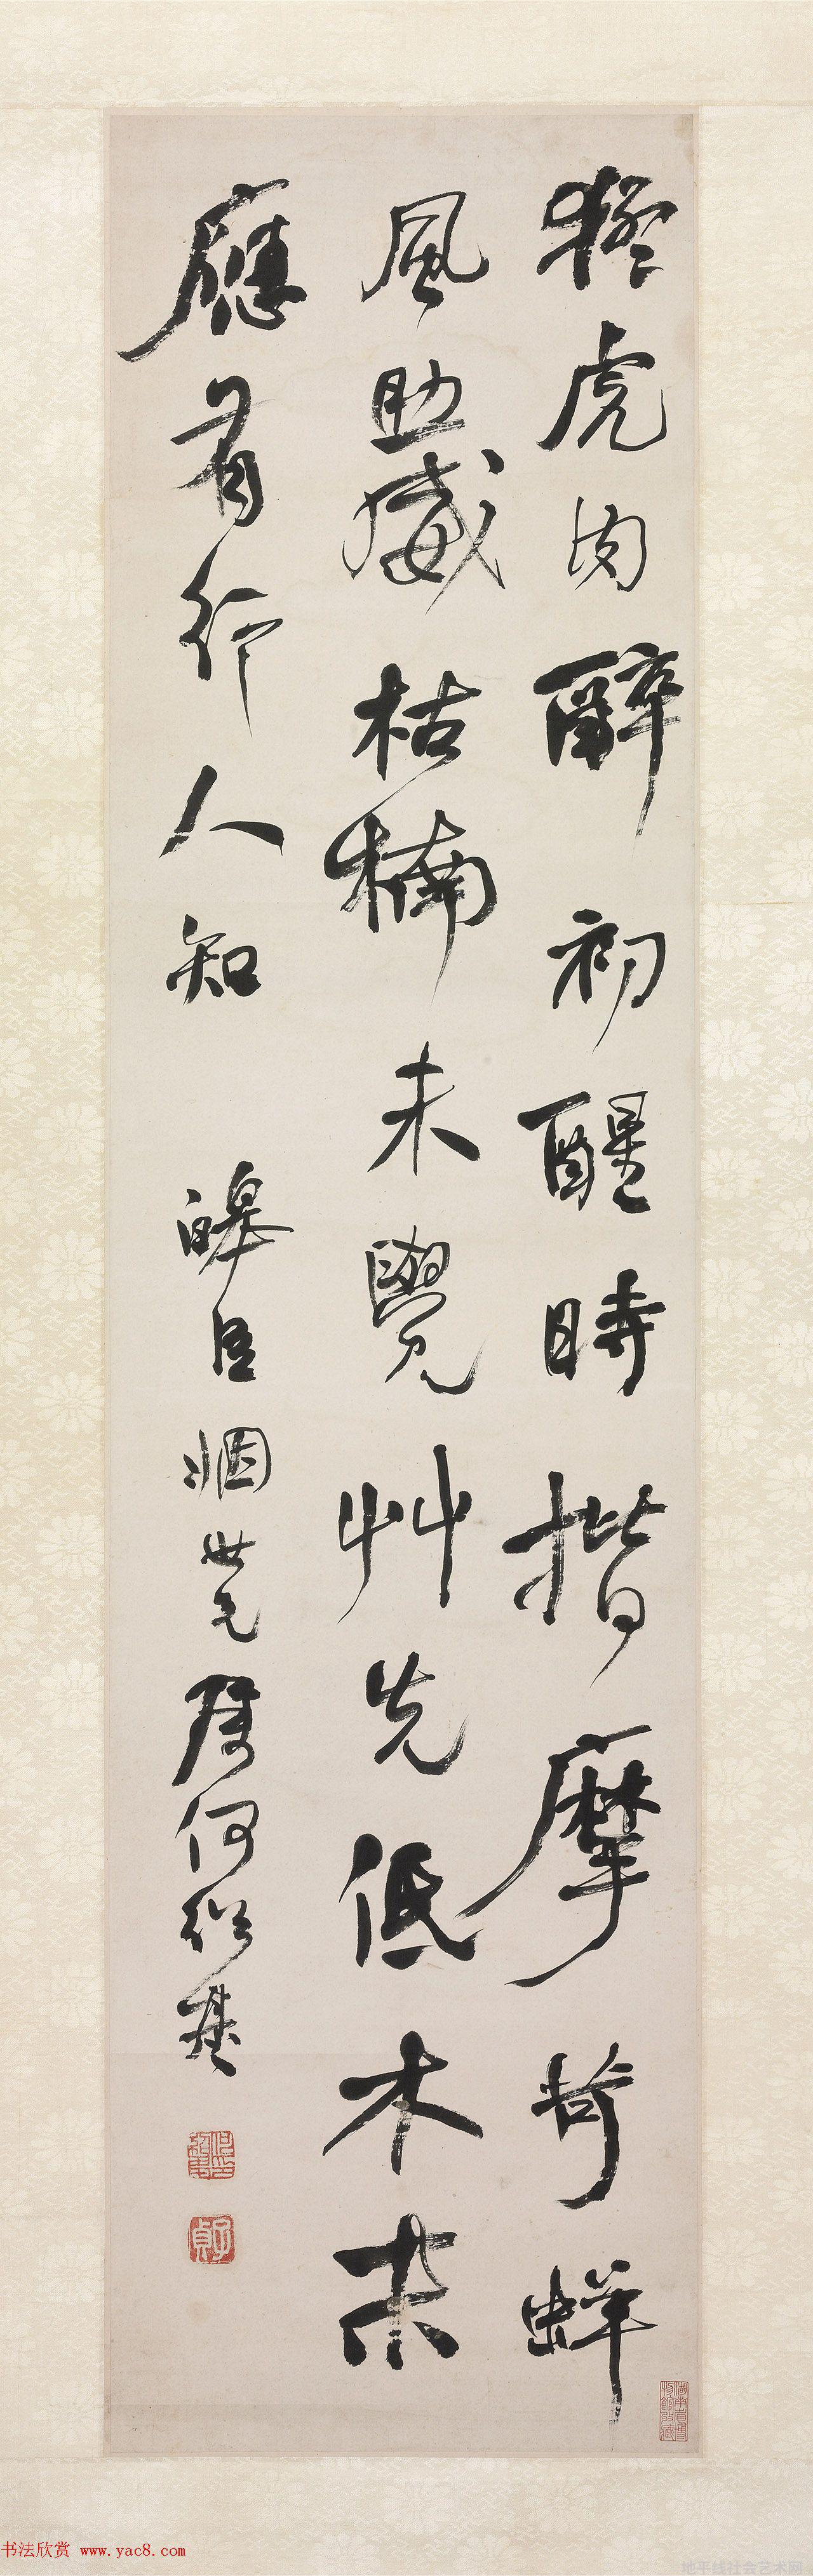 猛虎肉醉初醒時揩摩苛蛘
風助威枯楠未覺艸先低木末
應有行人知 皞臣姻世兄屬何紹基
子貞
书法欣赏 www.yac8.com